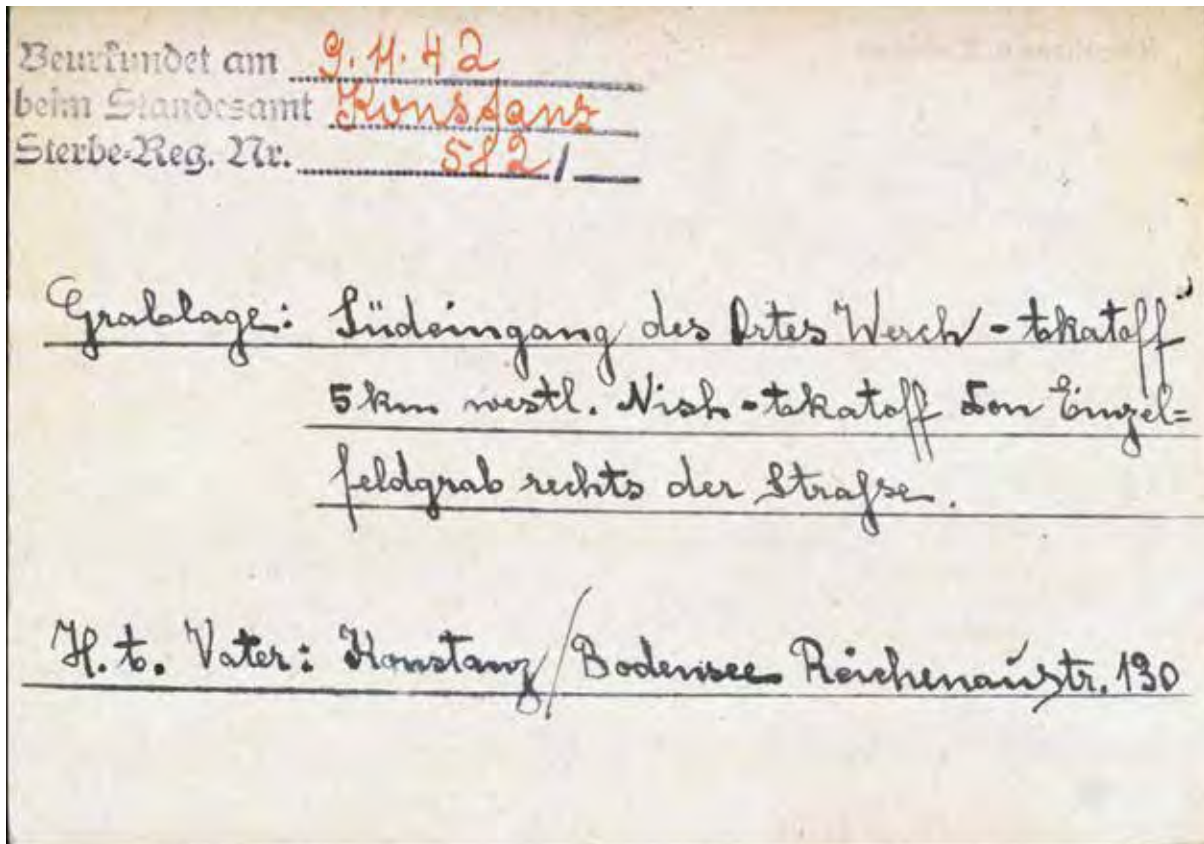 Beurkundet am 9.11.42
beim Standesamt Konstanz
Sterbe-Reg. Nr. 582/
Grablage: Südeingang des Ortes Werch-tskatoff
5 km westl. Nish-tskatoff Don Einzel=
feldgrab rechts der Strafse.
H. t. Vater: Konstanz/Bodensee Reichenaustr. 130